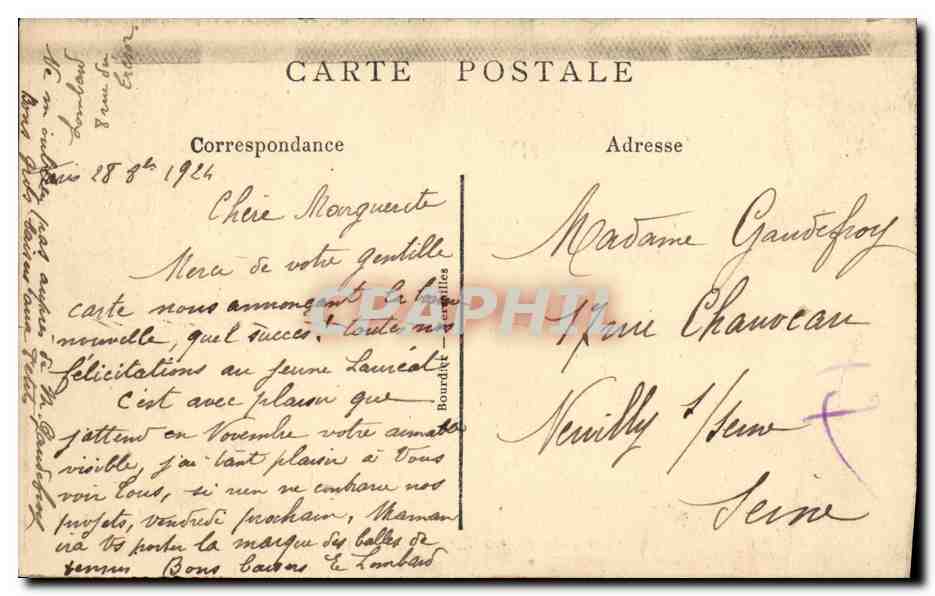 CARTE POSTALE
Correspondance
Adresse
Paris 28 8bre 1924
Chère Marguerite
Merci de votre gentille
carte nous annonçant la bonne
nouvelle, quel succès! toutes nos
félicitations au jeune Lauréat
C'est avec plaisir que
j'attend en Novembre votre aimable
visible, j'ai tant plaisir à Vous
voir tous, si rien ne contrarie nos
projets, vendredi prochain, Maman
ira Vs porter la marque des balles de
tennis Bons baisers E Lombard
Ne m'oubliez pas auprès de M. Gaudefroy
Bons gros baisers aux petits
Lombard
8 rue du
Madame Gaudefroy
17 rue Chauveau
Neuilly s/Seine
Seine
Bourdier — Versailles
CPAPHIL